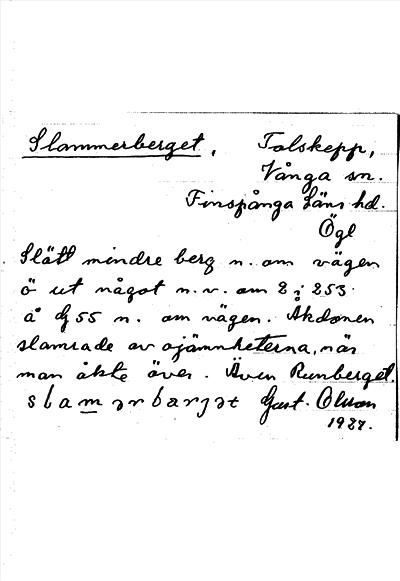 Slammerberget, Tolskepp,
Vånga sn.
Finspånga Läns hd.
Ögl
Slätt mindre berg n. om vägen
ö ut något n.v. om 2 i 253
å dj 55 n. om vägen. Åkdonen
slamrade av ojämnheterna, när
man åkte över. Även Runberget.
slamərbarjət Gust. Olson
1927.